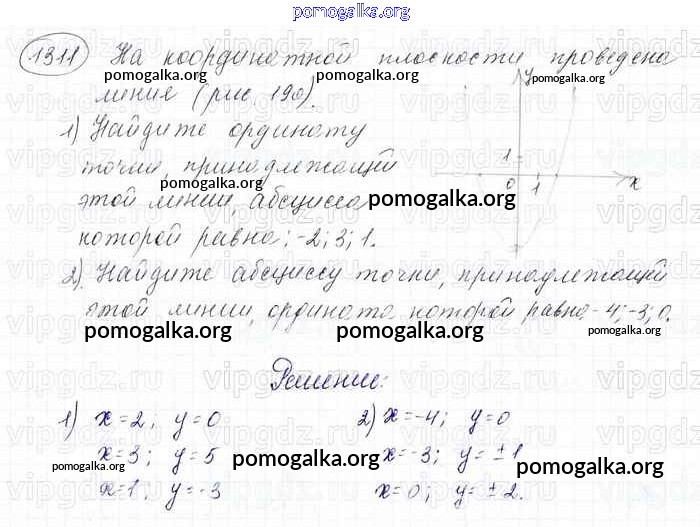 pomogalka.org
1311 На координатной плоскости проведена
линия (рис 190).
1) Найдите ординату
точки, принадлежащей
этой линии, абсцисса
которой равна: -2; 3; 1.
2). Найдите абсциссу точки, принадлежащей
этой линии, ордината которой равна -4; -3; 0.
y
1
0 1 x
Решение:
1) x=2; y=0
x=3; y=5
x=1, y=-3
2) x=-4; y=0
x=-3; y=±1
x=0; y=±2.
pomogalka.org
pomogalka.org
pomogalka.org
pomogalka.org
pomogalka.org
pomogalka.org
pomogalka.org
pomogalka.org
pomogalka.org
pomogalka.org
pomogalka.org
vipgdz.ru